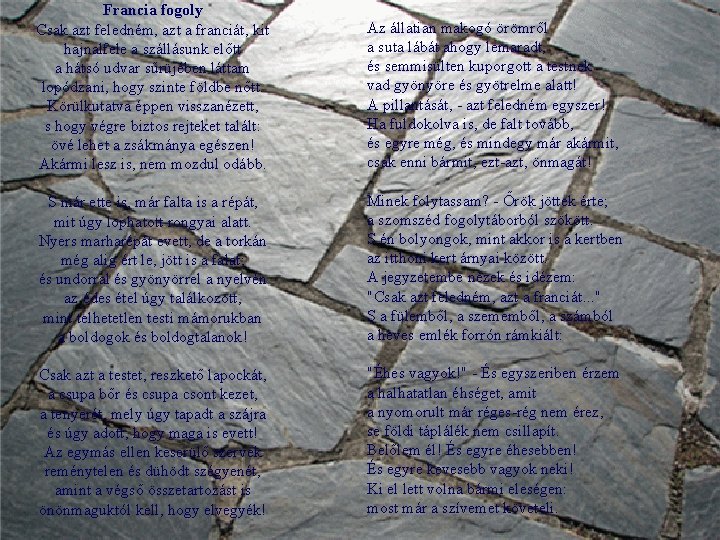 Francia fogoly
Csak azt feledném, azt a franciát, kit
hajnalfele a szállásunk előtt
a hátsó udvar sűrűjében láttam
lopódzani, hogy szinte földbe nőtt.
Körülkutatva éppen visszanézett,
s hogy végre biztos rejteket talált:
övé lehet a zsákmánya egészen!
Akármi lesz is, nem mozdul odább.
S már ette is, már falta is a répát,
mit úgy lophatott rongyai alatt.
Nyers marharépát evett, de a torkán
még alig ért le, jött is a falat;
és undorral és gyönyörrel a nyelven
az édes étel úgy találkozott,
mint telhetetlen testi mámorukban
a boldogok és boldogtalanok!
Csak azt a testet, reszkető lapockát,
a csupa bőr és csupa csont kezet,
a tenyerét, mely úgy tapadt a szájra
és úgy adott, hogy maga is evett!
Az egymás ellen keserülő szervek
reménytelen és dühödt szégyenét,
amint a végső összetartozást is
önönmaguktól kell, hogy elvegyék!
Az állatian makogó örömről
a suta lábát ahogy lemaradt,
és semmisülten kuporgott a testnek
vad gyönyöre és gyötrelme alatt!
A pillantását, - azt feledném egyszer!
Ha fuldokolva is, de falt tovább,
és egyre még, és mindegy már akármit,
csak enni bármit, ezt-azt, önmagát!
Minek folytassam? - Őrök jöttek érte;
a szomszéd fogolytáborból szökött.
S én bolyongok, mint akkor is a kertben
az itthoni kert árnyai között.
A jegyzetembe nézek és idézem:
"Csak azt feledném, azt a franciát..."
S a fülemből, a szememből, a számból
a heves emlék forrón rámkiált:
"Éhes vagyok!" - És egyszeriben érzem
a halhatatlan éhséget, amit
a nyomorult már réges-rég nem érez,
se földi táplálék nem csillapít.
Belőlem él! És egyre éhesebben!
És egyre kevesebb vagyok neki!
Ki el lett volna bármi eleségen:
most már a szívemet követeli.